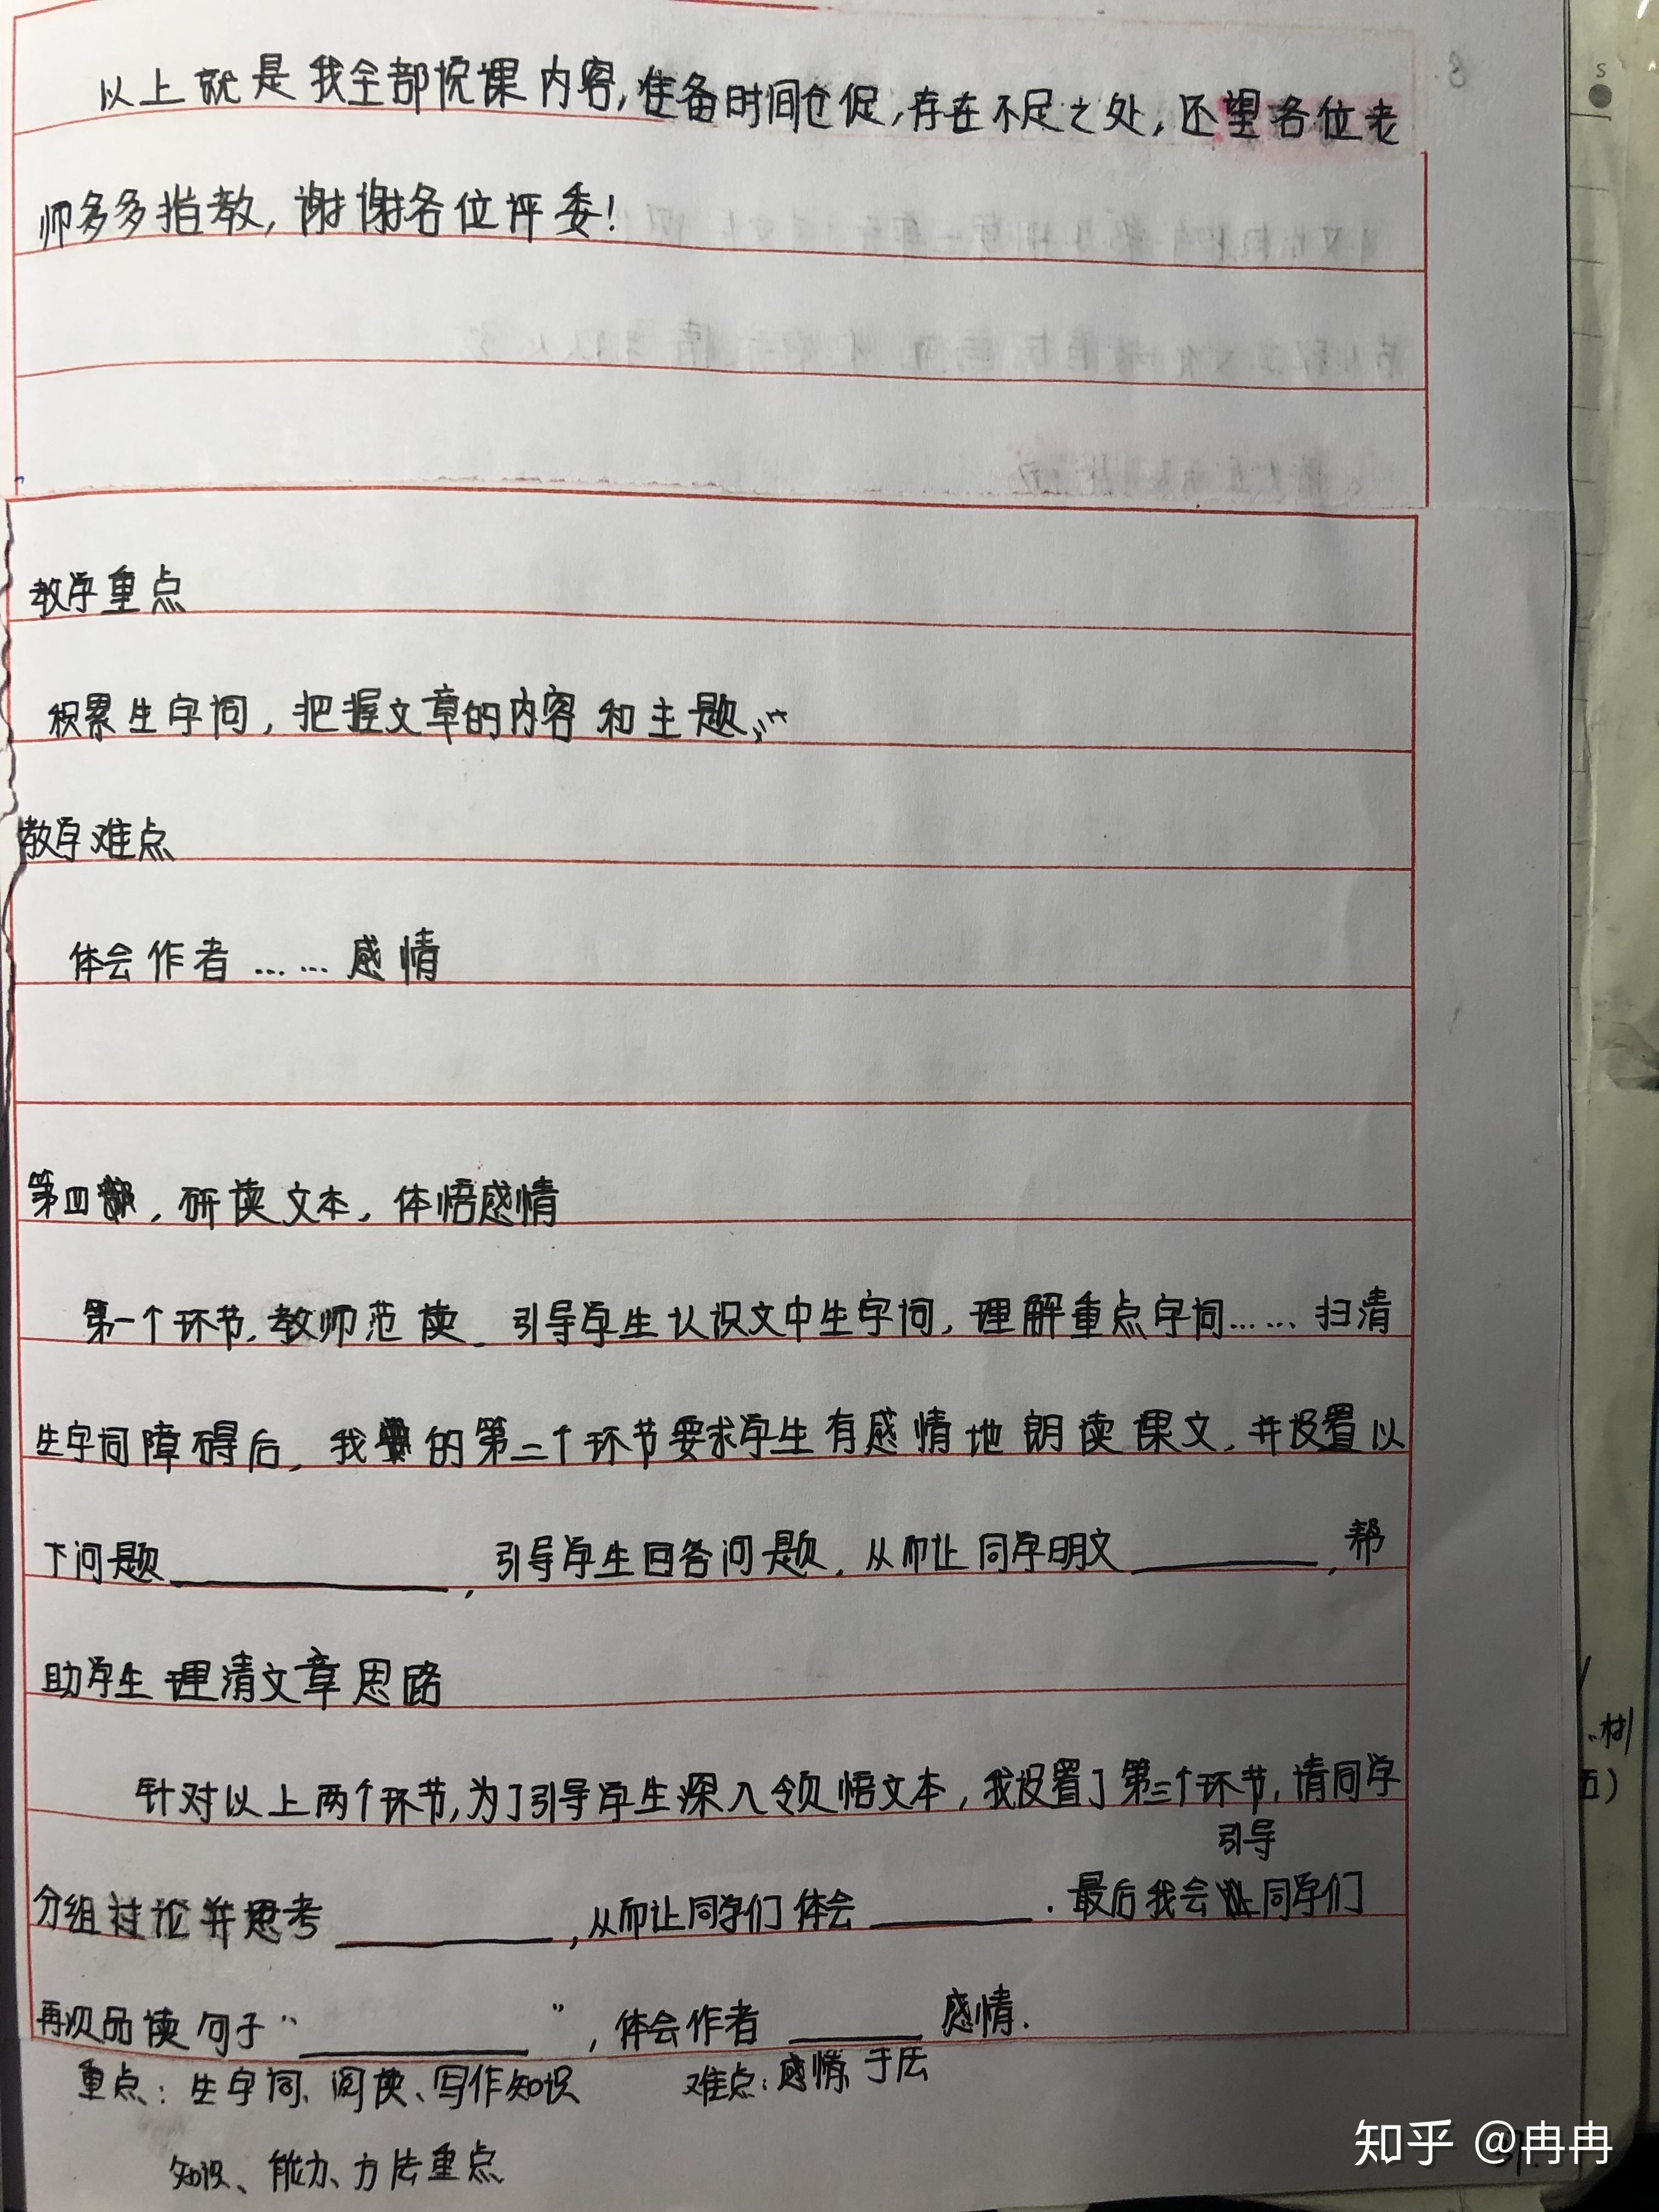 以上就是我全部说课内容,准备时间仓促,存在不足之处,还望各位老
师多多指教,谢谢各位评委!
教学重点
积累生字词,把握文章的内容和主题
教学难点
体会作者……感情
第四,研读文本,体悟感情
第一个环节,教师范读.引导学生认识文中生字词,理解重点字词……扫清
生字词障碍后,我的第二个环节要求学生有感情地朗读课文,并设置以
下问题______,引导学生回答问题,从而让同学明文______,帮
助学生理清文章思路
针对以上两个环节,为了引导学生深入领悟文本,我设置了第三个环节,请同学
引导
分组讨论并思考______,从而让同学们体会______.最后我会同学们
再次品读句子“______”,体会作者______感情.
重点:生字词、阅读、写作知识 难点:感情、手法
知识、能力、方法重点
知乎 @冉冉